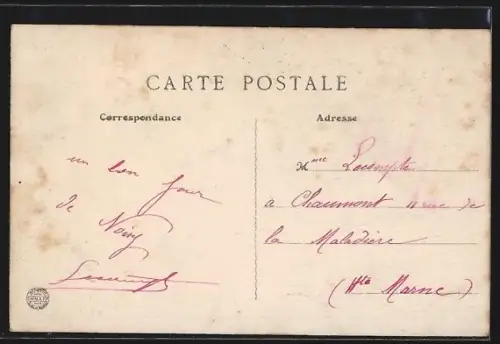 CARTE POSTALE
Correspondance
Adresse
un bon jour
de Noisy
Mme Lecompte
a Chaumont 11 rue de
la Maladière
(Hte Marne)